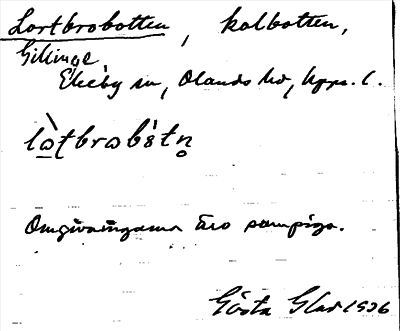 Lortbrobotten, kolbotten,
Gillinge
Ekeby sn, Olands hd, Upps. l.
lò̲tbrobòtn̥
Omgivningarna äro sumpiga.
Gösta Glad 1936